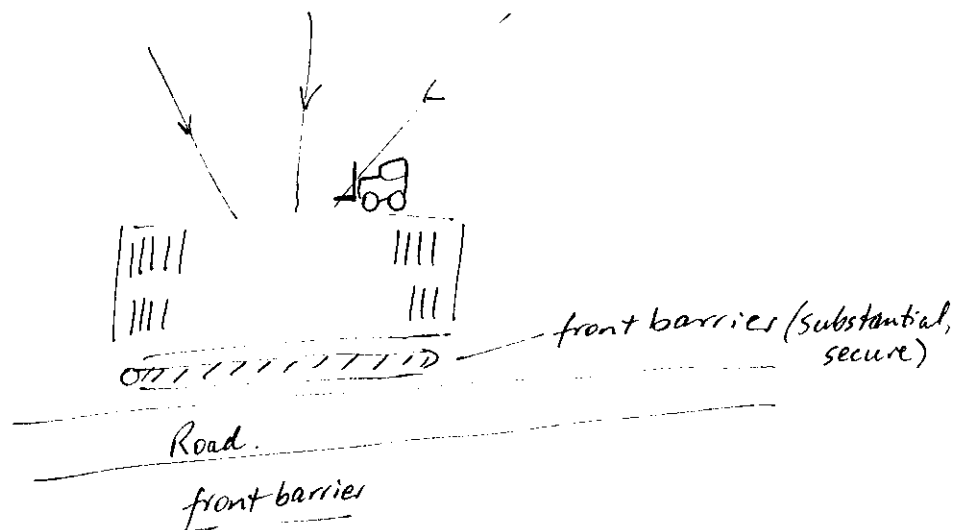 front barrier (substantial,
secure)
Road.
front barrier